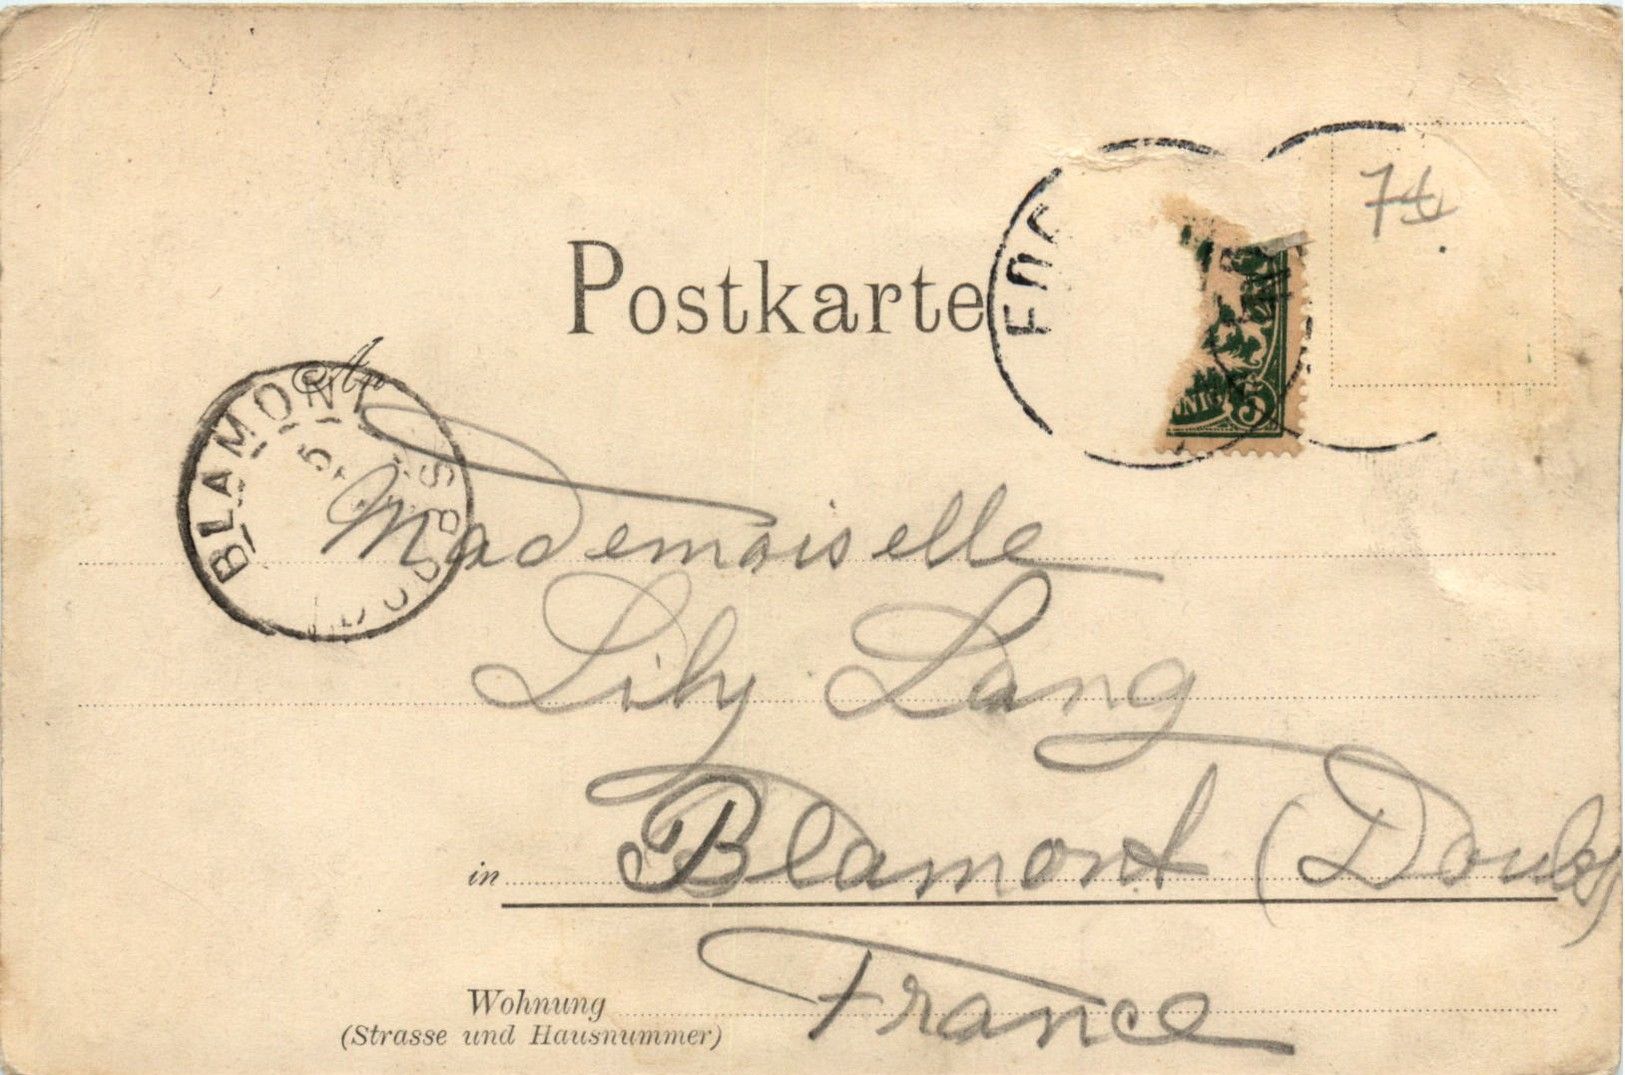 Postkarte
74
5
An
BLAMONT
DOUBS
5
Mademoiselle
Lily Lang
in Blamont (Doubs)
France
Wohnung
(Strasse und Hausnummer)